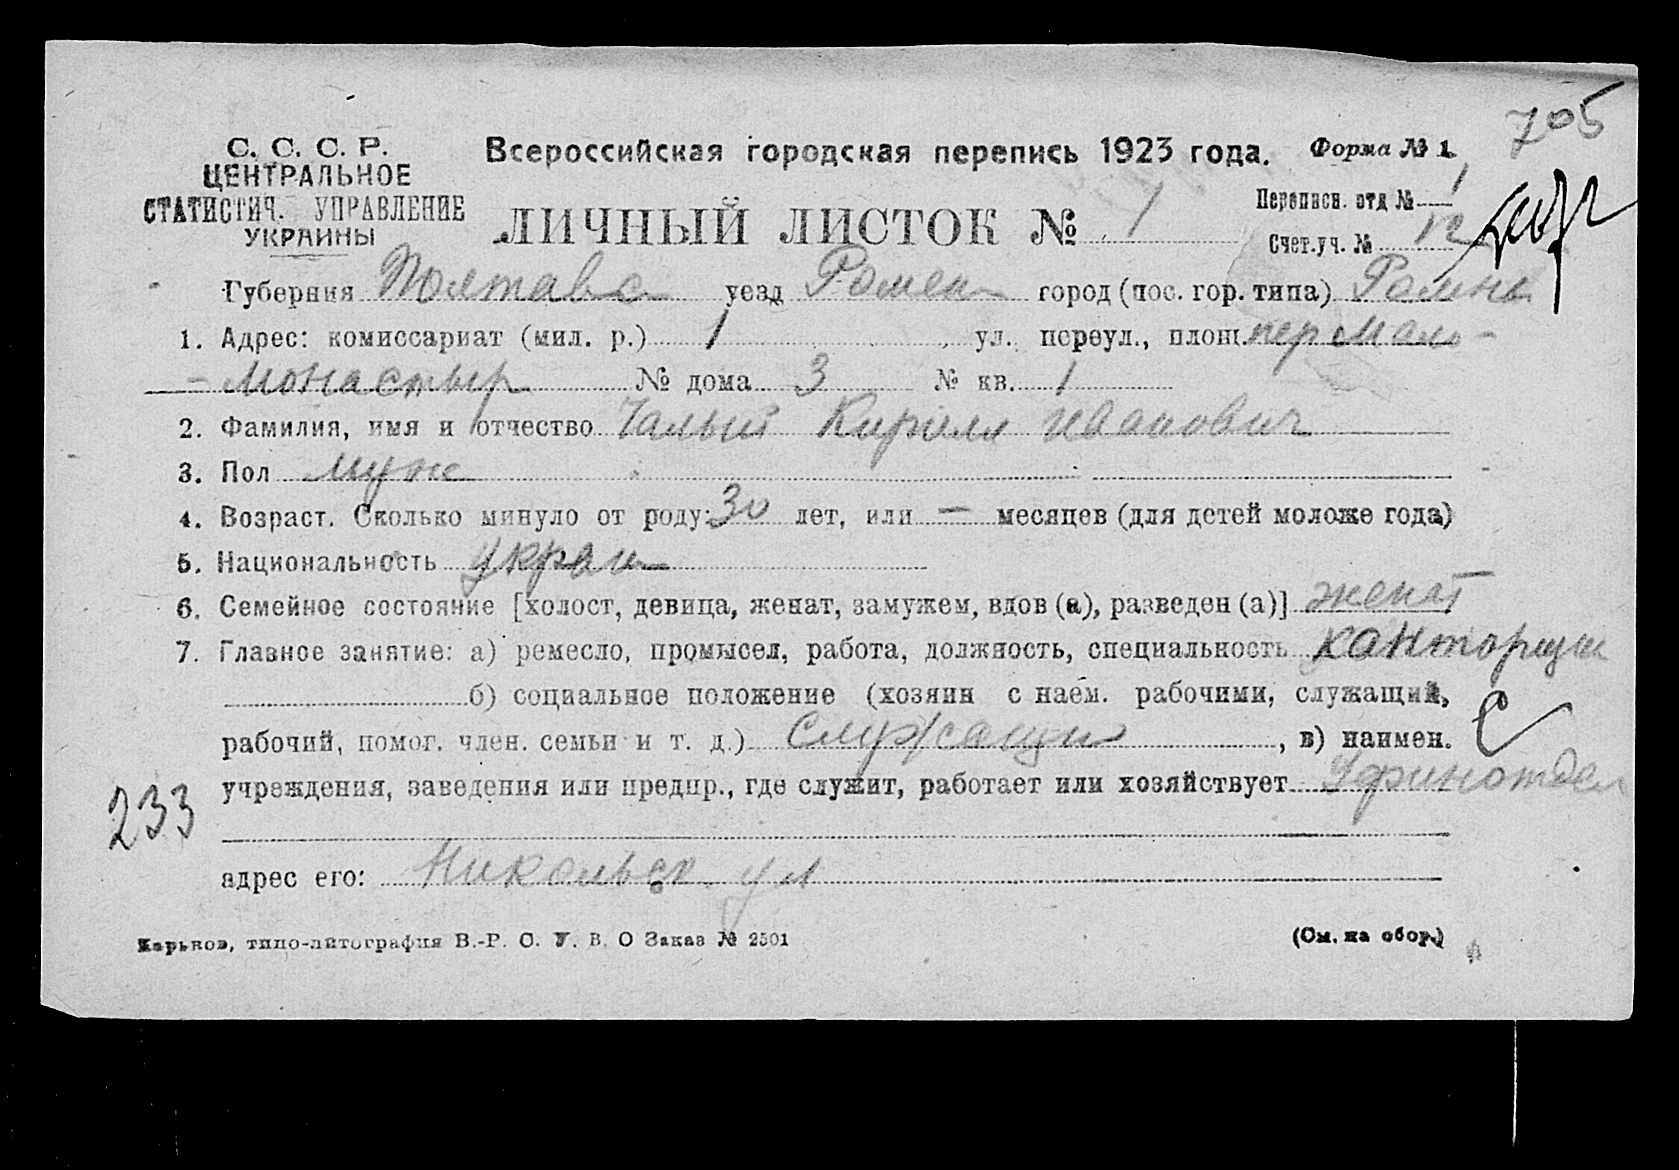 705
С. С. С. Р.
ЦЕНТРАЛЬНОЕ
СТАТИСТИЧ. УПРАВЛЕНИЕ
УКРАИНЫ
Всероссийская городская перепись 1923 года.
Форма № 1.
ЛИЧНЫЙ ЛИСТОК № 1
Переписн. отд № 1
Счет.уч. № 12
Губерния Полтавс уезд Ромен город (пос. гор. типа) Ромны
1. Адрес: комиссариат (мил. р.) 1 ул. переул., площ. пер Мало-
- Монастыр № дома 3 № кв. 1
2. Фамилия, имя и отчество Чалый Кирилл Иванович
3. Пол муж
4. Возраст. Сколько минуло от роду: 30 лет, или — месяцев (для детей моложе года)
5. Национальность украин
6. Семейное состояние [холост, девица, женат, замужем, вдов (а), разведен (а)] женат
7. Главное занятие: а) ремесло, промысел, работа, должность, специальность канторщик
б) социальное положение (хозяин с наем. рабочими, служащий,
рабочий, помог. член. семьи и т. д.) служащи, в) наимен. С
учреждения, заведения или предпр., где служит, работает или хозяйствует Уфинотдел
233
адрес его: Никольск ул
Харьков, типо-литография В.-Р. С. У. В. О Заказ № 2501
(См. на обор.)